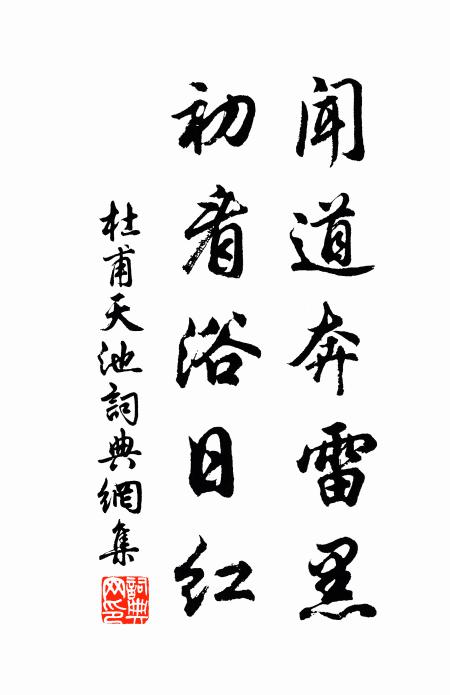 闻道奔雷黑
初看浴日红
杜甫天池詞典網集
詞典网印